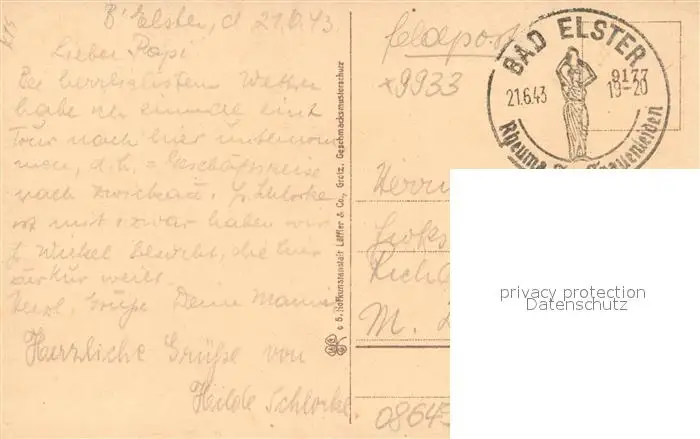 B' Elster, d 21.6.43.
Lieber Papi!
Bei herrlichstem Wetter
habe ich einmal eine
Tour nach hier unternom-
men, d.h. = Geschäftsreise
nach Zwickau. H. Schlorke
ist mit u. zwar haben wir
H. Winkel besucht, die hier
zur Kur weilt.
Herzl. Grüße Deine Mami
Herzliche Grüße von
Hilde Schlorke.
© S. Hofkunstanstalt Löffler & Co., Greiz. Geschmacksmusterschutz
Feldpost
x9933
BAD ELSTER
21.6.43
19-20
Rheuma
Frauenleiden
Herrn
M.
privacy protection
Datenschutz